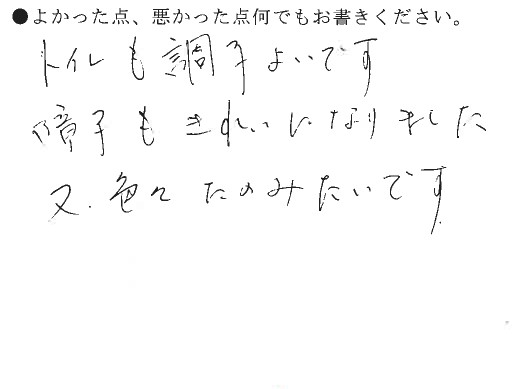 ●よかった点、悪かった点何でもお書きください。
トイレも調子よいです
障子もきれいになりました
又、色々たのみたいです